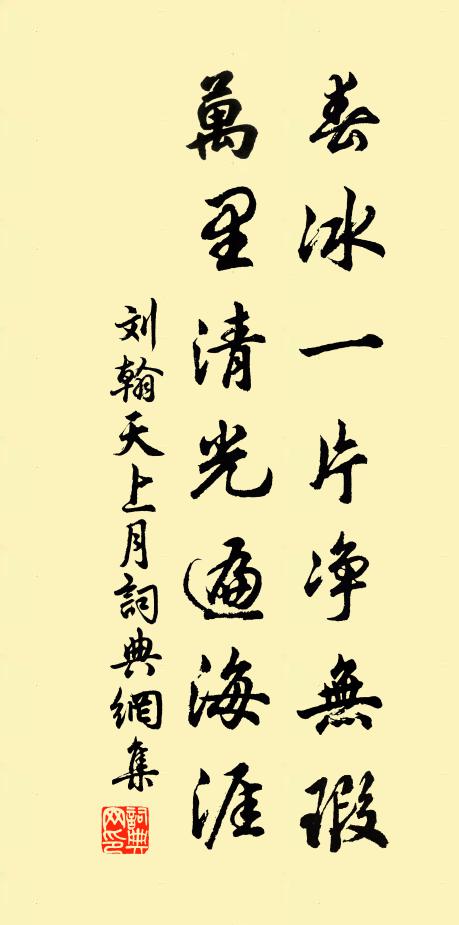 春冰一片净無瑕
萬里清光遍海涯
刘翰天上月詞典網集
詞典網印